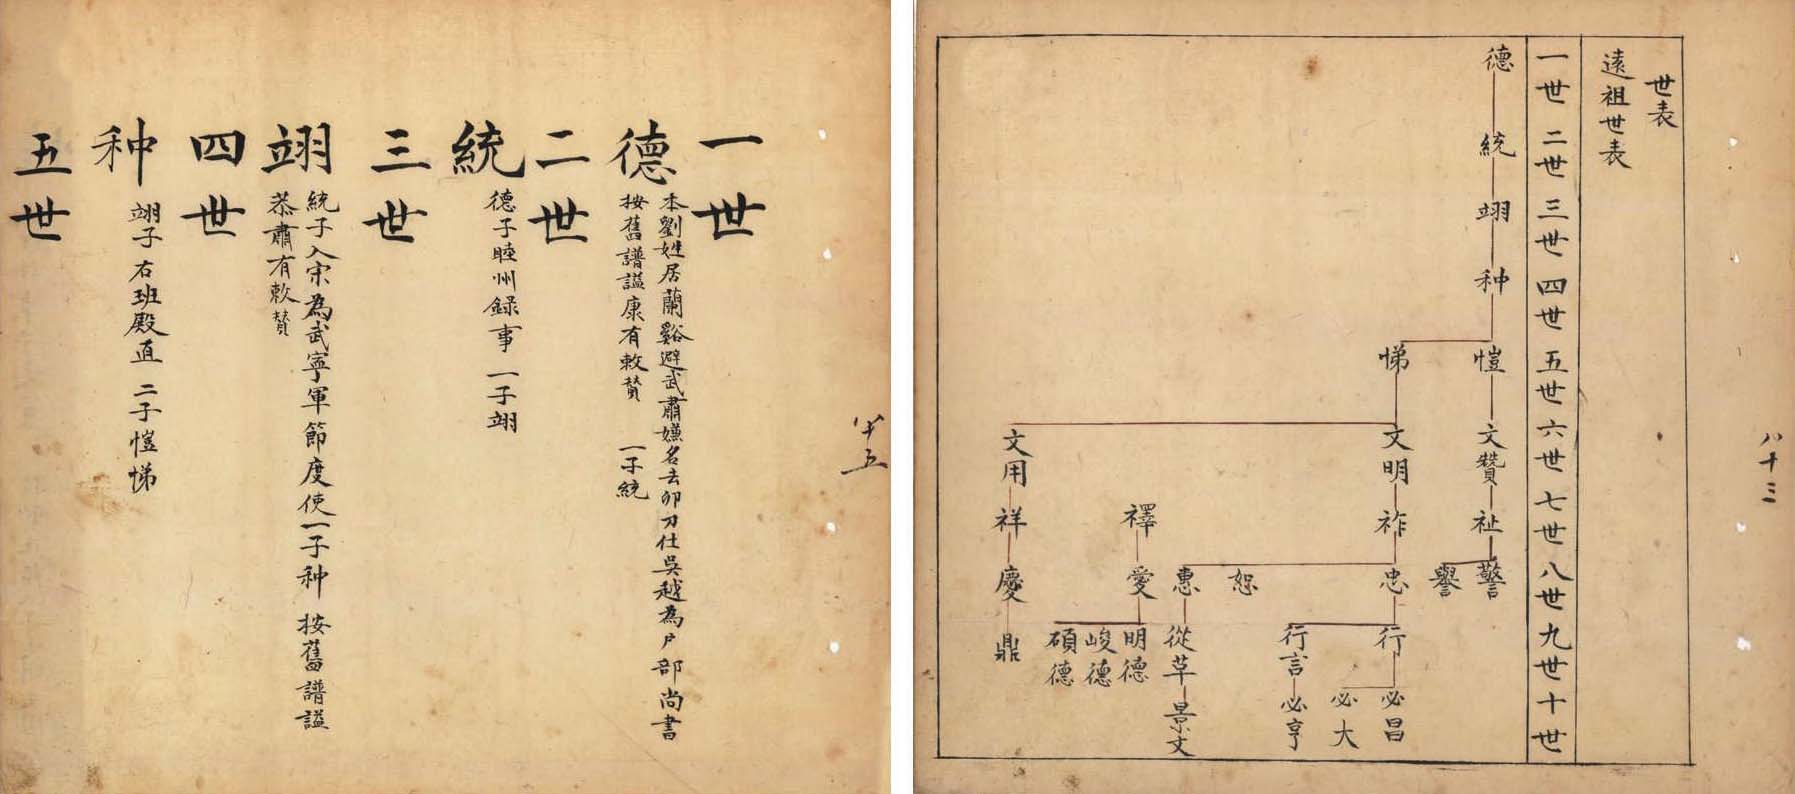 世表
遠祖世表
一世 二世 三世 四世 五世 六世 七世 八世 九世 十世
德 統 翊 种 愷 文贊 祉 警
譽
悌 文明 祚 忠 行 必昌
必大
行言 必亨
恕
惠 從草 景文
禪 愛 明德
峻德
碩德
文用 祥 慶 鼎
八十三
一世
德 本劉姓居蘭谿避武肅嫌名去卯刀仕吳越為戶部尚書
按舊譜諡康有敕贊 一子統
二世
統 德子睦州錄事一子翊
三世
翊 統子入宋為武寧軍節度使一子种 按舊譜諡
恭肅有敕贊
四世
种 翊子右班殿直 二子愷悌
五世